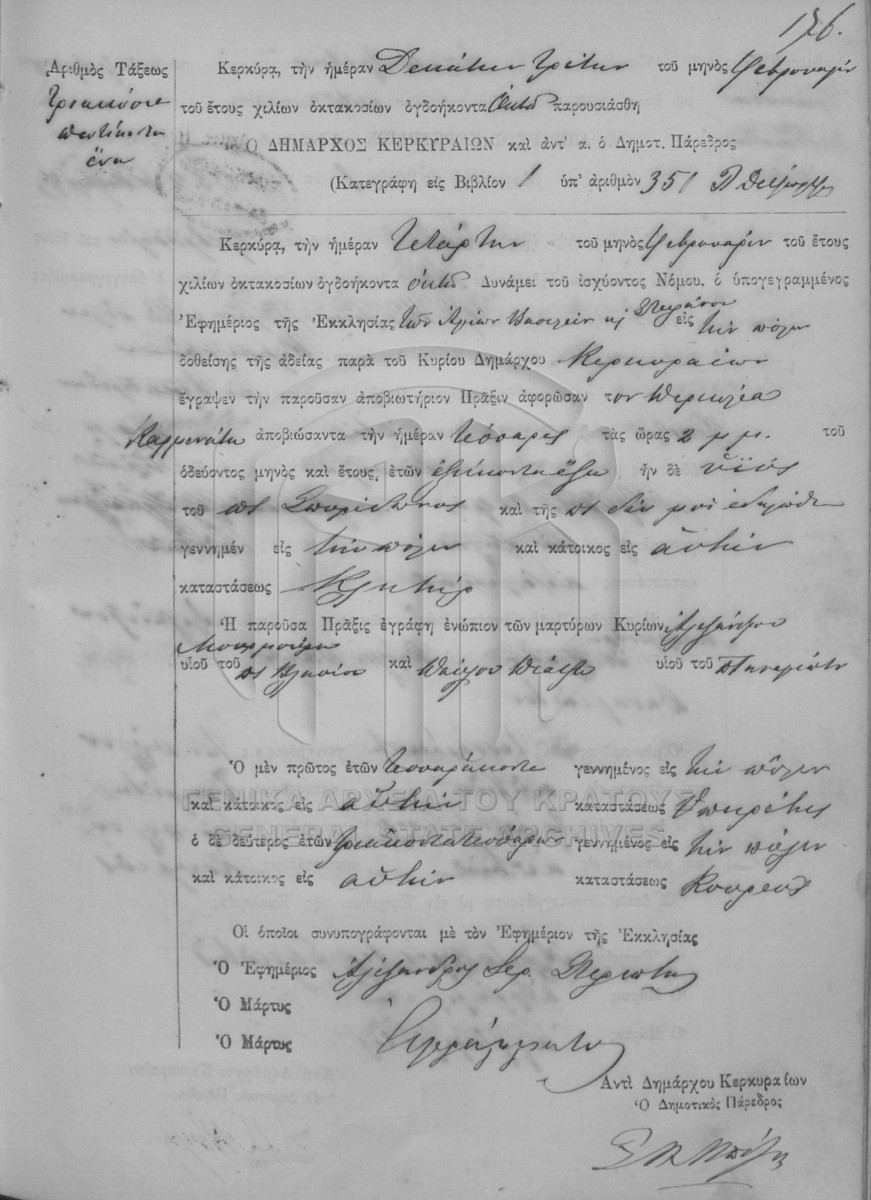 176.
Ἀριθμὸς Τάξεως
τριακόσια
πεντήκοντα
ἕνα
Κερκύρᾳ, τὴν ἡμέραν Δεκάτην τρίτην τοῦ μηνὸς Φεβρουαρίου
τοῦ ἔτους χιλίων ὀκτακοσίων ὀγδοήκοντα ὀκτὼ παρουσιάσθη
Ὁ ΔΗΜΑΡΧΟΣ ΚΕΡΚΥΡΑΙΩΝ καὶ ἀντ' α. ὁ Δημοτ. Πάρεδρος
(Κατεγράφη εἰς Βιβλίον 1 ὑπ' ἀριθμὸν 351
Κερκύρᾳ, τὴν ἡμέραν τετάρτην τοῦ μηνὸς Φεβρουαρίου τοῦ ἔτους
χιλίων ὀκτακοσίων ὀγδοήκοντα ὀκτὼ Δυνάμει τοῦ ἰσχύοντος Νόμου, ὁ ὑπογεγραμμένος
Ἐφημέριος τῆς Ἐκκλησίας τῶν Ἁγίων Βασιλείου κ Στεφάνου εἰς τὴν πόλιν
δοθείσης τῆς ἀδείας παρὰ τοῦ Κυρίου Δημάρχου Κερκυραίων
ἔγραψεν τὴν παροῦσαν ἀποβιωτήριον Πρᾶξιν ἀφορῶσαν τον Περικλέα
ἀποβιώσαντα τὴν ἡμέραν τέσσαρες τὰς ὥρας 2 μ.μ. τοῦ
ὁδεύοντος μηνὸς καὶ ἔτους, ἐτῶν ἑξήκοντα ἕξ ἦν δὲ υἱὸς
τοῦ πτ Σπυρίδωνος καὶ τῆς πτ δὲν μοὶ ἐδηλώθη
γεννημέν εἰς τὴν πόλιν καὶ κάτοικος εἰς αὐτὴν
καταστάσεως Κλητήρ
Ἡ παροῦσα Πρᾶξις ἐγράφη ἐνώπιον τῶν μαρτύρων Κυρίων Ἀλεξάνδρου
υἱοῦ τοῦ πτ Βλασίου καὶ Παύλου υἱοῦ τοῦ Παναγιώτη
Ὁ μὲν πρῶτος ἐτῶν τεσσαράκοντα γεννημένος εἰς τὴν πόλιν
καὶ κάτοικος εἰς αὐτὴν καταστάσεως Ὑπηρέτης
ὁ δὲ δεύτερος ἐτῶν τριακοντατεσσάρων γεννημένος εἰς τὴν πόλιν
καὶ κάτοικος εἰς αὐτὴν καταστάσεως Κουρεὺς
Οἱ ὁποῖοι συνυπογράφονται μὲ τὸν Ἐφημέριον τῆς Ἐκκλησίας
Ὁ Ἐφημέριος Ἀλέξανδρος Ἱερ.
Ὁ Μάρτυς
Ὁ Μάρτυς
Ἀντὶ Δημάρχου Κερκυραίων
Ὁ Δημοτικὸς Πάρεδρος
ΓΕΝΙΚΑ ΑΡΧΕΙΑ ΤΟΥ ΚΡΑΤΟΥΣ
GENERAL STATE ARCHIVES